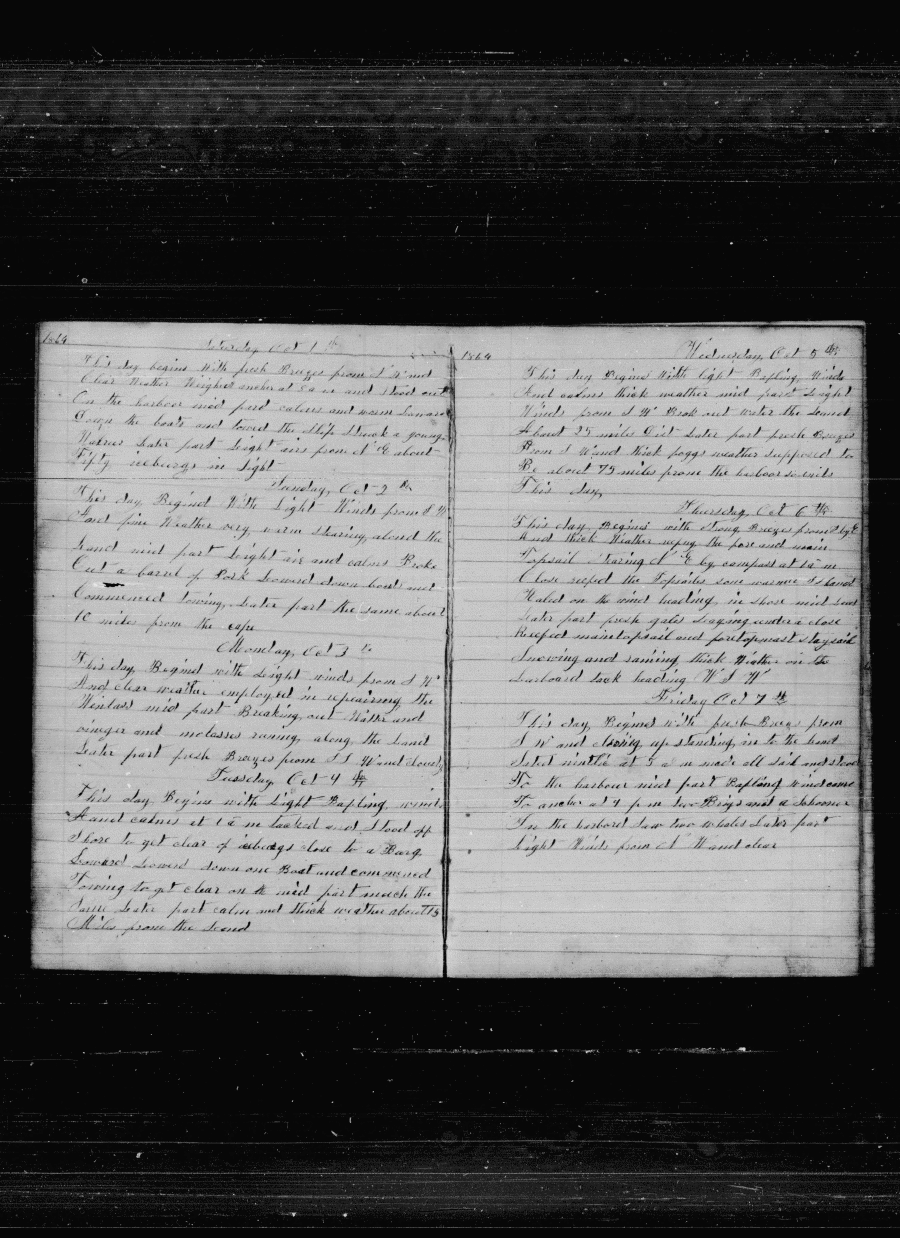 1864
Saturday Oct 1 th
This day begins With fresh Breezes from S W and
Clear Weather Weighed anchor at 8 a m and Stood out
On the harbour mid part calms and worm Lowared
Down the boats and towed the Ship Struck a young
Later part Light airs from N E about
Fifty iceburgs in Sight
Sunday, Oct 2 th
This day Begind With Light Winds from S W
And fine Weather very warm stearing, alond the
Land mid part Leight air and calms Broke
Out a barrel of Pork Lowerd down boats and
Commenced towing, Later part the same about
10 miles from the cape
Monday, Oct 3 th
This day, Begind with Leight winds from S W
And clear weather employed in repairsing the
Winlass mid part Breaking, out Watter and
vinegar and molasses runing, along, the Land
Later part fresh Breezes from S S W and cloudy
Tuesday Oct 4 th
This day Begins with Light Bafling, winds
And calms at 1 a m tacked and Stood off
Shore to get clear of iceburgs close to a Burg
Lowerd down one Boat and commenced
Towing to get clear on it mid part much the
Same Later part calm and thick weather about 15
Miles from the Land
1864
Wednesday, Oct 5 th
This day Begins With light Bafling Winds
And calms thick weather mid part Leight
Winds from S W Brok out water the Land
About 25 miles Dist Later part fresh Breezes
From S W and thick foggs weather supposed to
Be about 75 miles frome the harbour
This day,
Thursday, Oct 6 th
This day Begins with Strong Breezes from S by E
And thick Weather the fore and main
Topsail Stearing N E by compas at 10 m
Close reefed the Topsailes some warmer
Haled on the wind heading, in shore mid and
Later part fresh gales Laying under a close
Reefed maintopsail and foretopmast staysail
Snowing and raining thick Weather on the
Larboard tack heading W S W
Friday Oct 7 th
This day, Begins with fresh Breezes from
S W and up standing in to the Land
at 5 a m made all sail and stood
To the harbour mid part Bafling wind came
To anchor at 4 p m two Brigs and a Schooner
In the harbord Saw two whales Later part
Light Winds from N W and clear